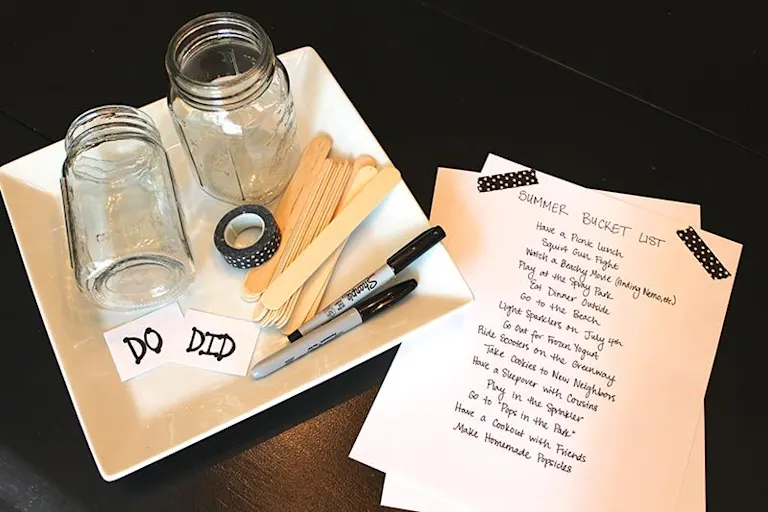 DO
DID
Sharpie
SUMMER BUCKET LIST
Have a Picnic Lunch
Squirt Gun Fight
Watch a Beachy Movie (Finding Nemo, etc)
Play at the Spray Park
Eat Dinner Outside
Go to the Beach
Light Sparklers on July 4th
Go Out for Frozen Yogurt
Ride Scooters on the Greenway
Take Cookies to New Neighbors
Have a Sleepover with Cousins
Play in the Sprinkler
Go to "Pops in the Park"
Have a Cookout with Friends
Make Homemade Popsicles